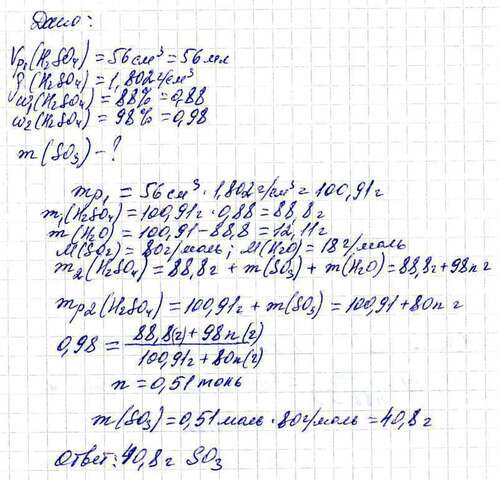 Дано:
Vр₁(H₂SO₄) = 56 см³ = 56 мл
ρ₁(H₂SO₄) = 1,802 г/см³
ω₁(H₂SO₄) = 88% = 0,88
ω₂(H₂SO₄) = 98% = 0,98
m(SO₃) - ?
mр₁ = 56 см³ · 1,802 г/см³ = 100,91 г
m₁(H₂SO₄) = 100,91 г · 0,88 = 88,8 г
m(H₂O) = 100,91 - 88,8 = 12,11 г
M(SO₃) = 80 г/моль; M(H₂O) = 18 г/моль
m₂(H₂SO₄) = 88,8 г + m(SO₃) + m(H₂O) = 88,8 г + 98n г
mр₂(H₂SO₄) = 100,91 г + m(SO₃) = 100,91 + 80n г
0,98 = 88,8(г) + 98n(г) / 100,91 г + 80n(г)
n = 0,51 моль
m(SO₃) = 0,51 моль · 80 г/моль = 40,8 г
Ответ: 40,8 г SO₃